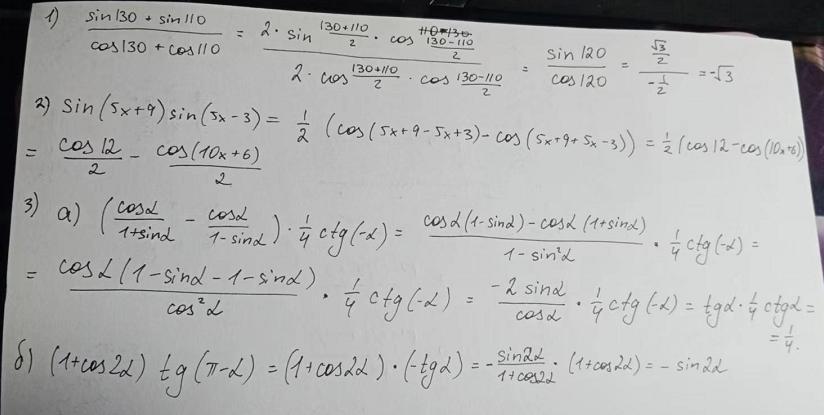 1) (sin130 + sin110)/(cos130 + cos110) = (2 · sin (130+110)/2 · cos (130-110)/2)/(2 · cos (130+110)/2 · cos (130-110)/2) = sin120/cos120 = (√3/2)/(-1/2) = -√3
2) sin(5x+9)sin(5x-3) = 1/2 (cos(5x+9-5x+3)-cos(5x+9+5x-3)) = 1/2(cos12-cos(10x+6))
= cos12/2 - cos(10x+6)/2
3) a) (cosα/(1+sinα) - cosα/(1-sinα)) · 1/4 ctg(-α) = (cosα(1-sinα)-cosα(1+sinα))/(1-sin²α) · 1/4 ctg(-α) =
= cosα(1-sinα-1-sinα)/cos²α · 1/4 ctg(-α) = -2sinα/cosα · 1/4 ctg(-α) = tgα · 1/4 ctgα =
= 1/4.
б) (1+cos2α) tg(π-α) = (1+cos2α) · (-tgα) = -sin2α/(1+cos2α) · (1+cos2α) = - sin2α